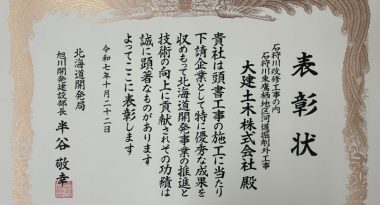 表彰状
石狩川改修工事の内
石狩川東鷹栖地区河道掘削外工事
大建土木株式会社 殿
貴社は頭書工事の施工に当たり
下請企業として特に優秀な成果を
収めもって北海道開発事業の推進と
技術の向上に貢献されその功績は
誠に顕著なものがあります
よってここに表彰します
令和七年十月二十二日
北海道開発局
旭川開発建設部長 半谷敬幸